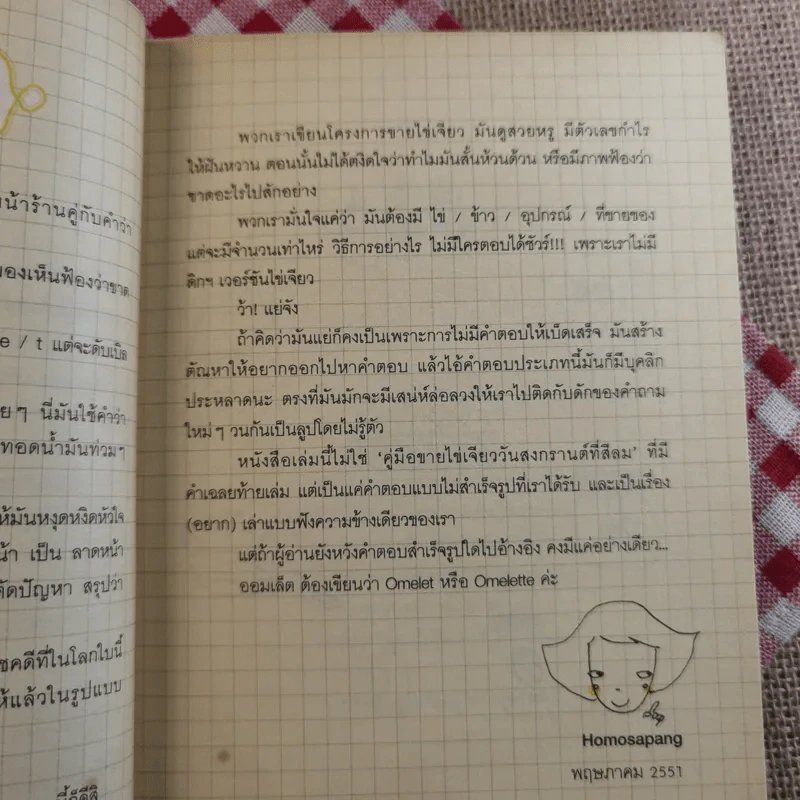 น้าร้านคู่กับคำว่า
องเห็นฟ้องว่าขาด
e / t แต่จะดับเบิล
ยๆ นี่มันใช้คำว่า
ทอดน้ำมันท่วมๆ
ห้มันหงุดหงิดหัวใจ
น้า เป็น ลาดหน้า
ตัดปัญหา สรุปว่า
ชคดีที่ในโลกใบนี้
ห้แล้วในรูปแบบ
พวกเราเขียนโครงการขายไข่เจียว มันดูสวยหรู มีตัวเลขกำไร
ให้ฝันหวาน ตอนนั้นไม่ได้ตงิดใจว่าทำไมมันสั้นห้วนด้วน หรือมีภาพฟ้องว่า
ขาดอะไรไปสักอย่าง
พวกเรามั่นใจแค่ว่า มันต้องมี ไข่ / ข้าว / อุปกรณ์ / ที่ขายของ
แต่จะมีจำนวนเท่าไหร่ วิธีการอย่างไร ไม่มีใครตอบได้ชัวร์!!! เพราะเราไม่มี
ดิกฯ เวอร์ชันไข่เจียว
ว้า! แย่จัง
ถ้าคิดว่ามันแย่ก็คงเป็นเพราะการไม่มีคำตอบให้เบ็ดเสร็จ มันสร้าง
ตัณหาให้อยากออกไปหาคำตอบ แล้วไอ้คำตอบประเภทนี้มันก็มีบุคลิก
ประหลาดนะ ตรงที่มันมักจะมีเสน่ห์ล่อลวงให้เราไปติดกับดักของคำถาม
ใหม่ๆ วนกันเป็นลูปโดยไม่รู้ตัว
หนังสือเล่มนี้ไม่ใช่ ‘คู่มือขายไข่เจียววันสงกรานต์ที่สีลม’ ที่มี
คำเฉลยท้ายเล่ม แต่เป็นแค่คำตอบแบบไม่สำเร็จรูปที่เราได้รับ และเป็นเรื่อง
(อยาก) เล่าแบบฟังความข้างเดียวของเรา
แต่ถ้าผู้อ่านยังหวังคำตอบสำเร็จรูปใดไปอ้างอิง คงมีแค่อย่างเดียว...
ออมเล็ต ต้องเขียนว่า Omelet หรือ Omelette ค่ะ
Homosapang
พฤษภาคม 2551